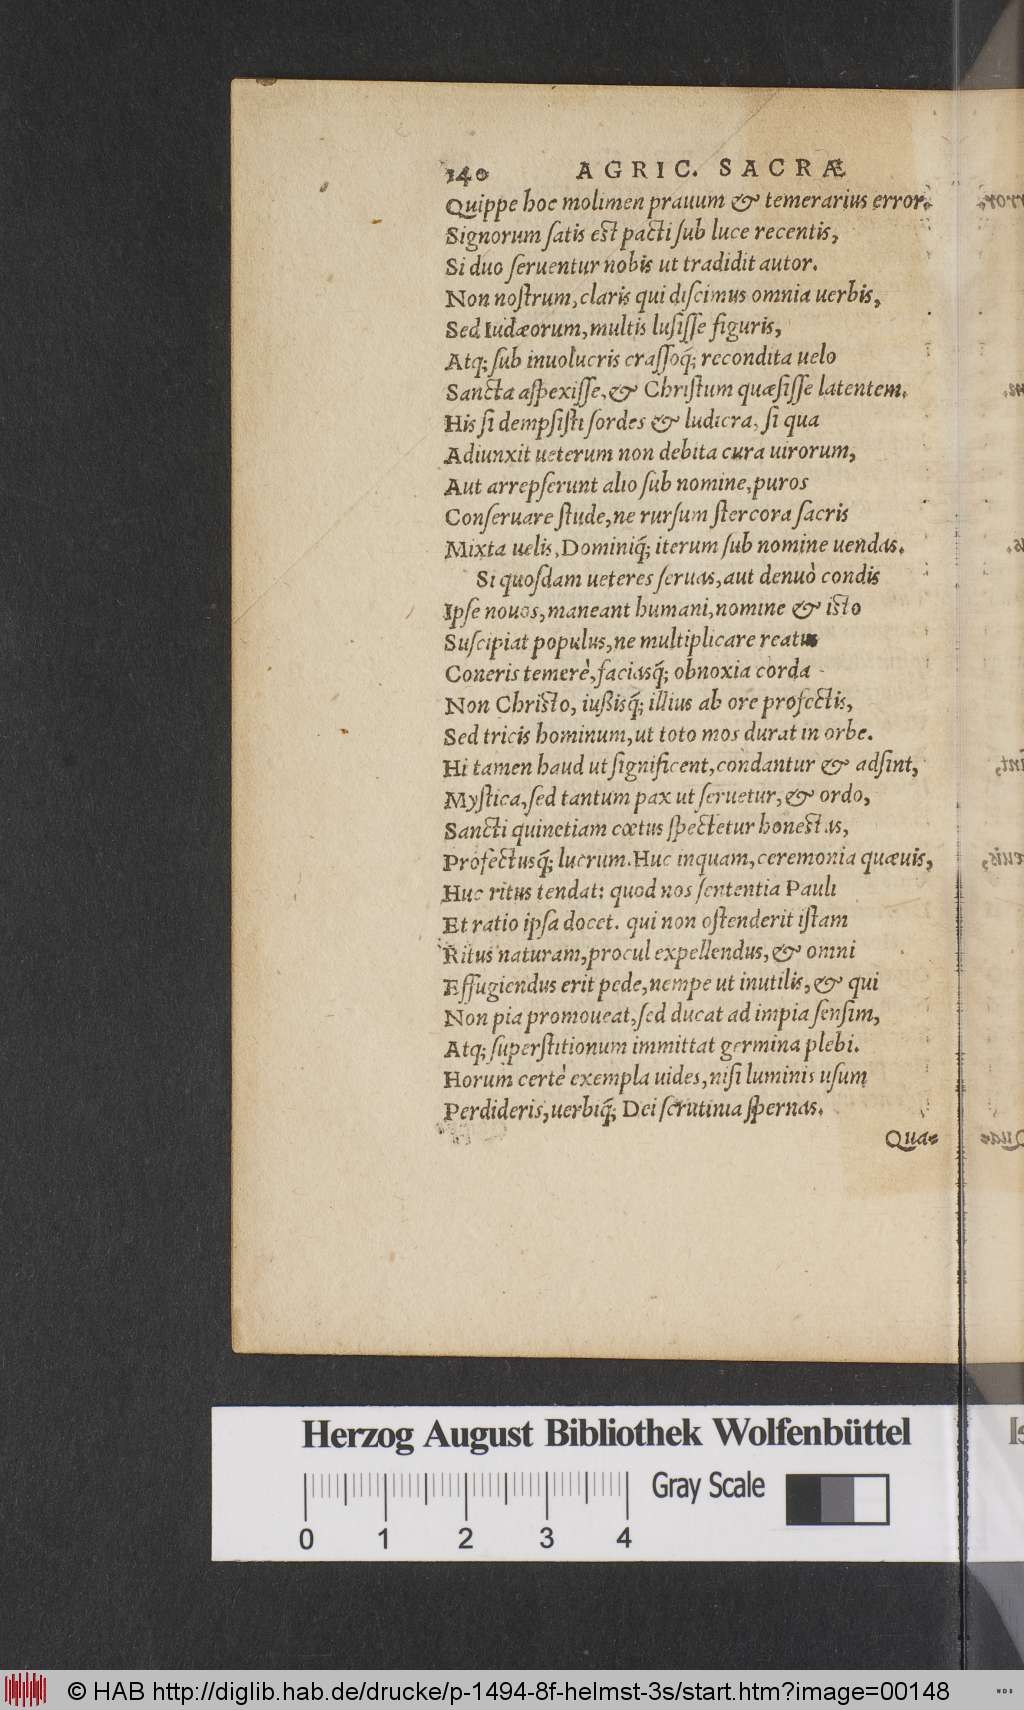 140 AGRIC. SACRÆ
Quippe hoc molimen prauum & temerarius error.
Signorum ſatis eſt pacti ſub luce recentis,
Si duo ſeruentur nobis ut tradidit autor.
Non noſtrum, claris qui diſcimus omnia uerbis,
Sed Iudæorum, multis luſiſſe figuris,
Atq; ſub inuolucris craſſoq́; recondita uelo
Sancta aſpexiſſe, & Chriſtum quæſiſſe latentem.
His ſi dempſiſti ſordes & ludicra, ſi qua
Adiunxit ueterum non debita cura uirorum,
Aut arrepſerunt alio ſub nomine, puros
Conſeruare ſtude, ne rurſum ſtercora ſacris
Mixta uelis, Dominiq́; iterum ſub nomine uendas.
Si quoſdam ueteres ſeruas, aut denuò condis
Ipſe nouos, maneant humani, nomine & iſto
Suſcipiat populus, ne multiplicare reatus
Coneris temerè, faciasq́; obnoxia corda
Non Chriſto, iußisq́; illius ab ore profectis,
Sed tricis hominum, ut toto mos durat in orbe.
Hi tamen haud ut ſignificent, condantur & adſint,
Myſtica, ſed tantum pax ut ſeruetur, & ordo,
Sancti quinetiam cœtus ſpectetur honeſtas,
Profectusq́; lucrum. Huc inquam, ceremonia quæuis,
Huc ritus tendat: quod nos ſententia Pauli
Et ratio ipſa docet. qui non oſtenderit iſtam
Ritus naturam, procul expellendus, & omni
Effugiendus erit pede, nempe ut inutilis, & qui
Non pia promoueat, ſed ducat ad impia ſenſim,
Atq; ſuperſtitionum immittat germina plebi.
Horum certè exempla uides, niſi luminis uſum
Perdideris, uerbiq́; Dei ſcrutinia ſpernas.
Qua-
Herzog August Bibliothek Wolfenbüttel
Gray Scale
0 1 2 3 4
© HAB http://diglib.hab.de/drucke/p-1494-8f-helmst-3s/start.htm?image=00148